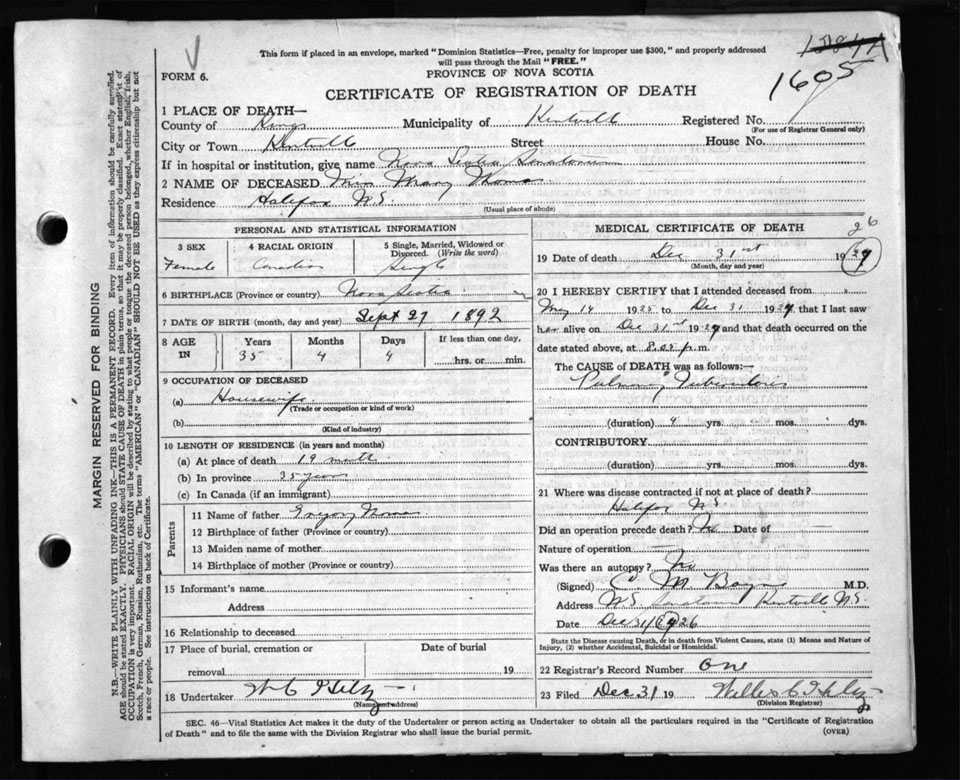 This form if placed in an envelope, marked "Dominion Statistics—Free, penalty for improper use $300," and properly addressed
will pass through the Mail "FREE."
FORM 6.
PROVINCE OF NOVA SCOTIA
1605
CERTIFICATE OF REGISTRATION OF DEATH
1 PLACE OF DEATH—
County of Kings Municipality of Kentville Registered No.
(For use of Registrar General only)
City or Town Kentville Street House No.
If in hospital or institution, give name Nova Scotia Sanatorium
2 NAME OF DECEASED Miss Mary Thomas
Residence Halifax N.S.
(Usual place of abode)
PERSONAL AND STATISTICAL INFORMATION
3 SEX 4 RACIAL ORIGIN 5 Single, Married, Widowed or
Divorced. (Write the word)
Female Canadian Single
6 BIRTHPLACE (Province or country) Nova Scotia
7 DATE OF BIRTH (month, day and year) Sept 27 1892
8 AGE IN Years Months Days If less than one day,
35 4 4 hrs. or min.
9 OCCUPATION OF DECEASED
(a) Housewife.
(Trade or occupation or kind of work)
(b)
(Kind of industry)
10 LENGTH OF RESIDENCE (in years and months)
(a) At place of death 19 month
(b) In province 35 years
(c) In Canada (if an immigrant)
Parents
11 Name of father Gregory Thomas
12 Birthplace of father (Province or country)
13 Maiden name of mother
14 Birthplace of mother (Province or country)
15 Informant's name
Address
16 Relationship to deceased
17 Place of burial, cremation or Date of burial
removal 19
18 Undertaker W C
(Name and address)
MEDICAL CERTIFICATE OF DEATH
26
19 Date of death Dec 31st 1927
(Month, day and year)
20 I HEREBY CERTIFY that I attended deceased from
May 14 1925 to Dec 31 1927 that I last saw
her alive on Dec 31st 1927 and that death occurred on
date stated above, at 8.05 p.m.
The CAUSE of DEATH was as follows:—
Pulmonary Tuberculosis
(duration) 4 yrs. mos. dys.
CONTRIBUTORY
(duration) yrs. mos. dys.
21 Where was disease contracted if not at place of death?
Halifax N.S.
Did an operation precede death? No Date of
Nature of operation
Was there an autopsy? No
(Signed) M. M.D.
Address N.S. Sanatorium Kentville N.S.
Date Dec 31 1926
State the Disease causing Death, or in death from Violent Causes, state (1) Means and Nature of
Injury, (2) whether Accidental, Suicidal or Homicidal.
22 Registrar's Record Number One
23 Filed Dec. 31 19
(Division Registrar)
SEC. 46—Vital Statistics Act makes it the duty of the Undertaker or person acting as Undertaker to obtain all the particulars required in the "Certificate of Registration
of Death" and to file the same with the Division Registrar who shall issue the burial permit. (OVER)
MARGIN RESERVED FOR BINDING
N.B.—WRITE PLAINLY WITH UNFADING INK—THIS IS A PERMANENT RECORD. Every item of information should be carefully supplied.
AGE should be stated EXACTLY. PHYSICIANS should STATE CAUSE OF DEATH in plain terms, so that it may be properly classified. Exact statement of
OCCUPATION is very important. RACIAL ORIGIN will be described by stating to what people or tongue the deceased person belonged, whether English, Irish,
Scotch, French, German, Russian, Ruthenian, etc. The terms "AMERICAN" or "CANADIAN" SHOULD NOT BE USED as they express citizenship but not
a race or people. See instructions on back of Certificate.